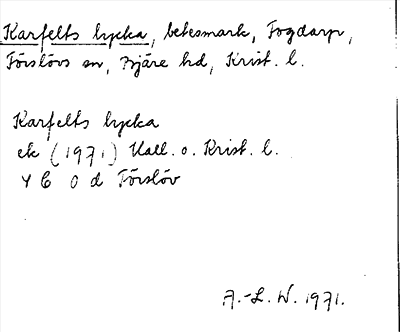 Karfelts lycka, betesmark, Fogdarp,
Förslövs sn, Bjäre hd, Krist. l.
Karfelts lycka
ek (1971) Hall. o. Krist. l.
4 C 0 d Förslöv
A.-L. W. 1971.